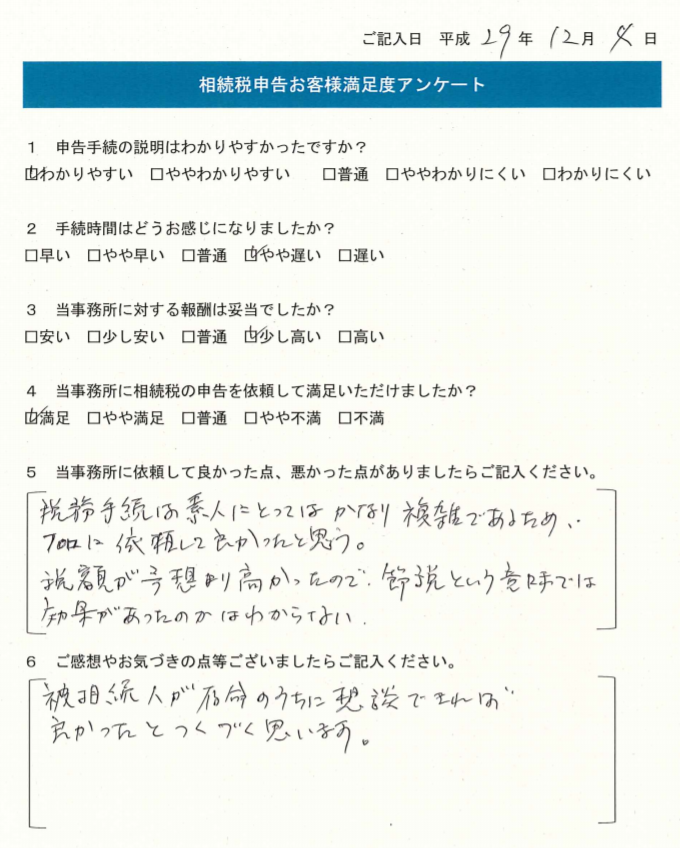 ご記入日 平成 29 年 12 月 4 日
相続税申告お客様満足度アンケート
1 申告手続の説明はわかりやすかったですか?
☑わかりやすい □ややわかりやすい □普通 □ややわかりにくい □わかりにくい
2 手続時間はどうお感じになりましたか?
□早い □やや早い □普通 ☑やや遅い □遅い
3 当事務所に対する報酬は妥当でしたか?
□安い □少し安い □普通 ☑少し高い □高い
4 当事務所に相続税の申告を依頼して満足いただけましたか?
☑満足 □やや満足 □普通 □やや不満 □不満
5 当事務所に依頼して良かった点、悪かった点がありましたらご記入ください。
税務手続は素人にとってはかなり複雑であるため、
プロに依頼して良かったと思う。
税額が予想より高かったので、節税という意味では
効果があったのかはわからない。
6 ご感想やお気づきの点等ございましたらご記入ください。
被相続人が存命のうちに想談できれば
良かったとつくづく思います。